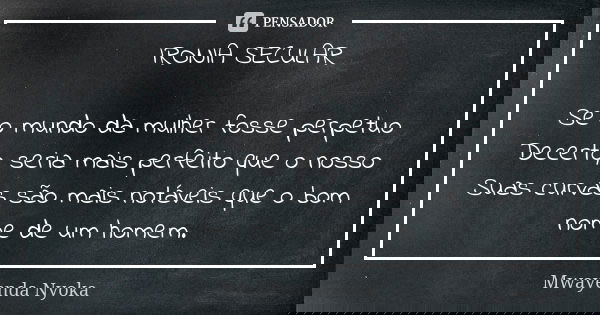 PENSADOR
IRONIA SECULAR
Se o mundo da mulher fosse perpetuo
Decerto, seria mais perfeito que o nosso
Suas curvas são mais notáveis que o bom
nome de um homem.
Mwayenda Nyoka